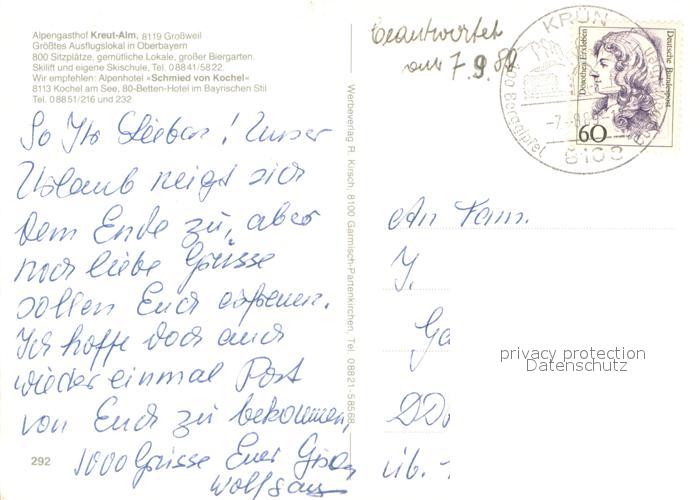 Alpengasthof Kreut-Alm, 8119 Großweil
Größtes Ausflugslokal in Oberbayern
800 Sitzplätze, gemütliche Lokale, großer Biergarten.
Skilift und eigene Skischule, Tel. 08841/5822.
Wir empfehlen: Alpenhotel »Schmied von Kochel«
8113 Kochel am See, 80-Betten-Hotel im Bayrischen Stil
Tel. 08851/216 und 232
So Ihr Lieben! Unser
Urlaub neigt sich
dem Ende zu, aber
noch liebe Grüsse
sollen Euch erfreuen.
Ich hoffe doch auch
wieder einmal Post
von Euch zu bekommen,
1000 Grüsse Euer
Wolfgang
292
Werbeverlag R. Kirsch, 8100 Garmisch-Partenkirchen, Tel. 08821-58568
beantwortet
am 7.9.
KRÜN
8108
Dorothea Erxleben
Deutsche Bundespost
60
An Fam.
J.
Ga
DD
üb.
privacy protection
Datenschutz